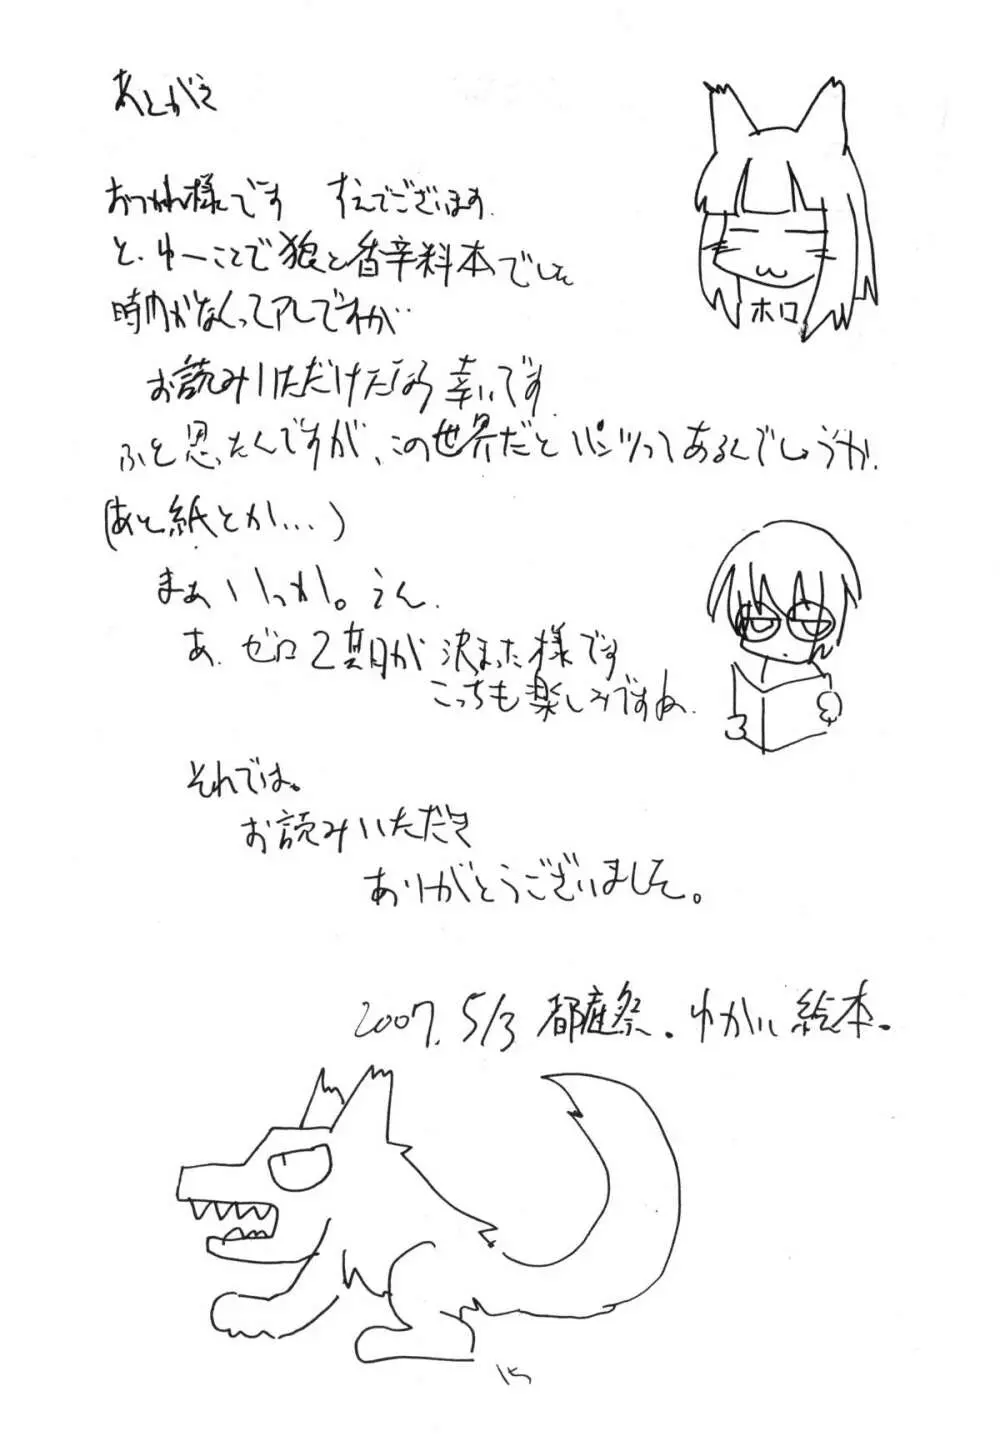 あとがき
おつかれ様です すえでございます.
と.ゆーことで狼と香辛料本でした
時間がなくってアレですが…
ホロ
お読みいただけたなら幸いです
ふと思ったんですが、この世界だとパンツってあるんでしょうか.
(あと紙とか…)
まあいっか。うん.
あ.ゼロ2期が決まった様です
こっちも楽しみですね.
それでは。
お読みいただき
ありがとうございました。
2007.5/3 都庭祭.ゆかい絵本.
15